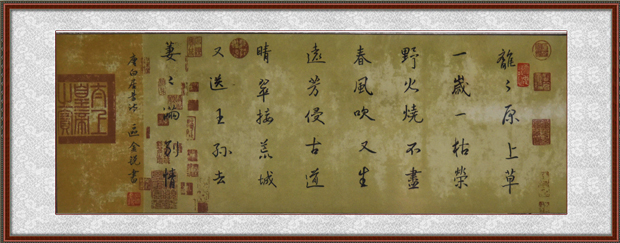 離々原上草
一歲一枯榮
野火燒不盡
春風吹又生
遠芳侵古道
晴翠接荒城
又送王孫去
萋々滿別情
唐白居易詩
書
太上皇帝之寶